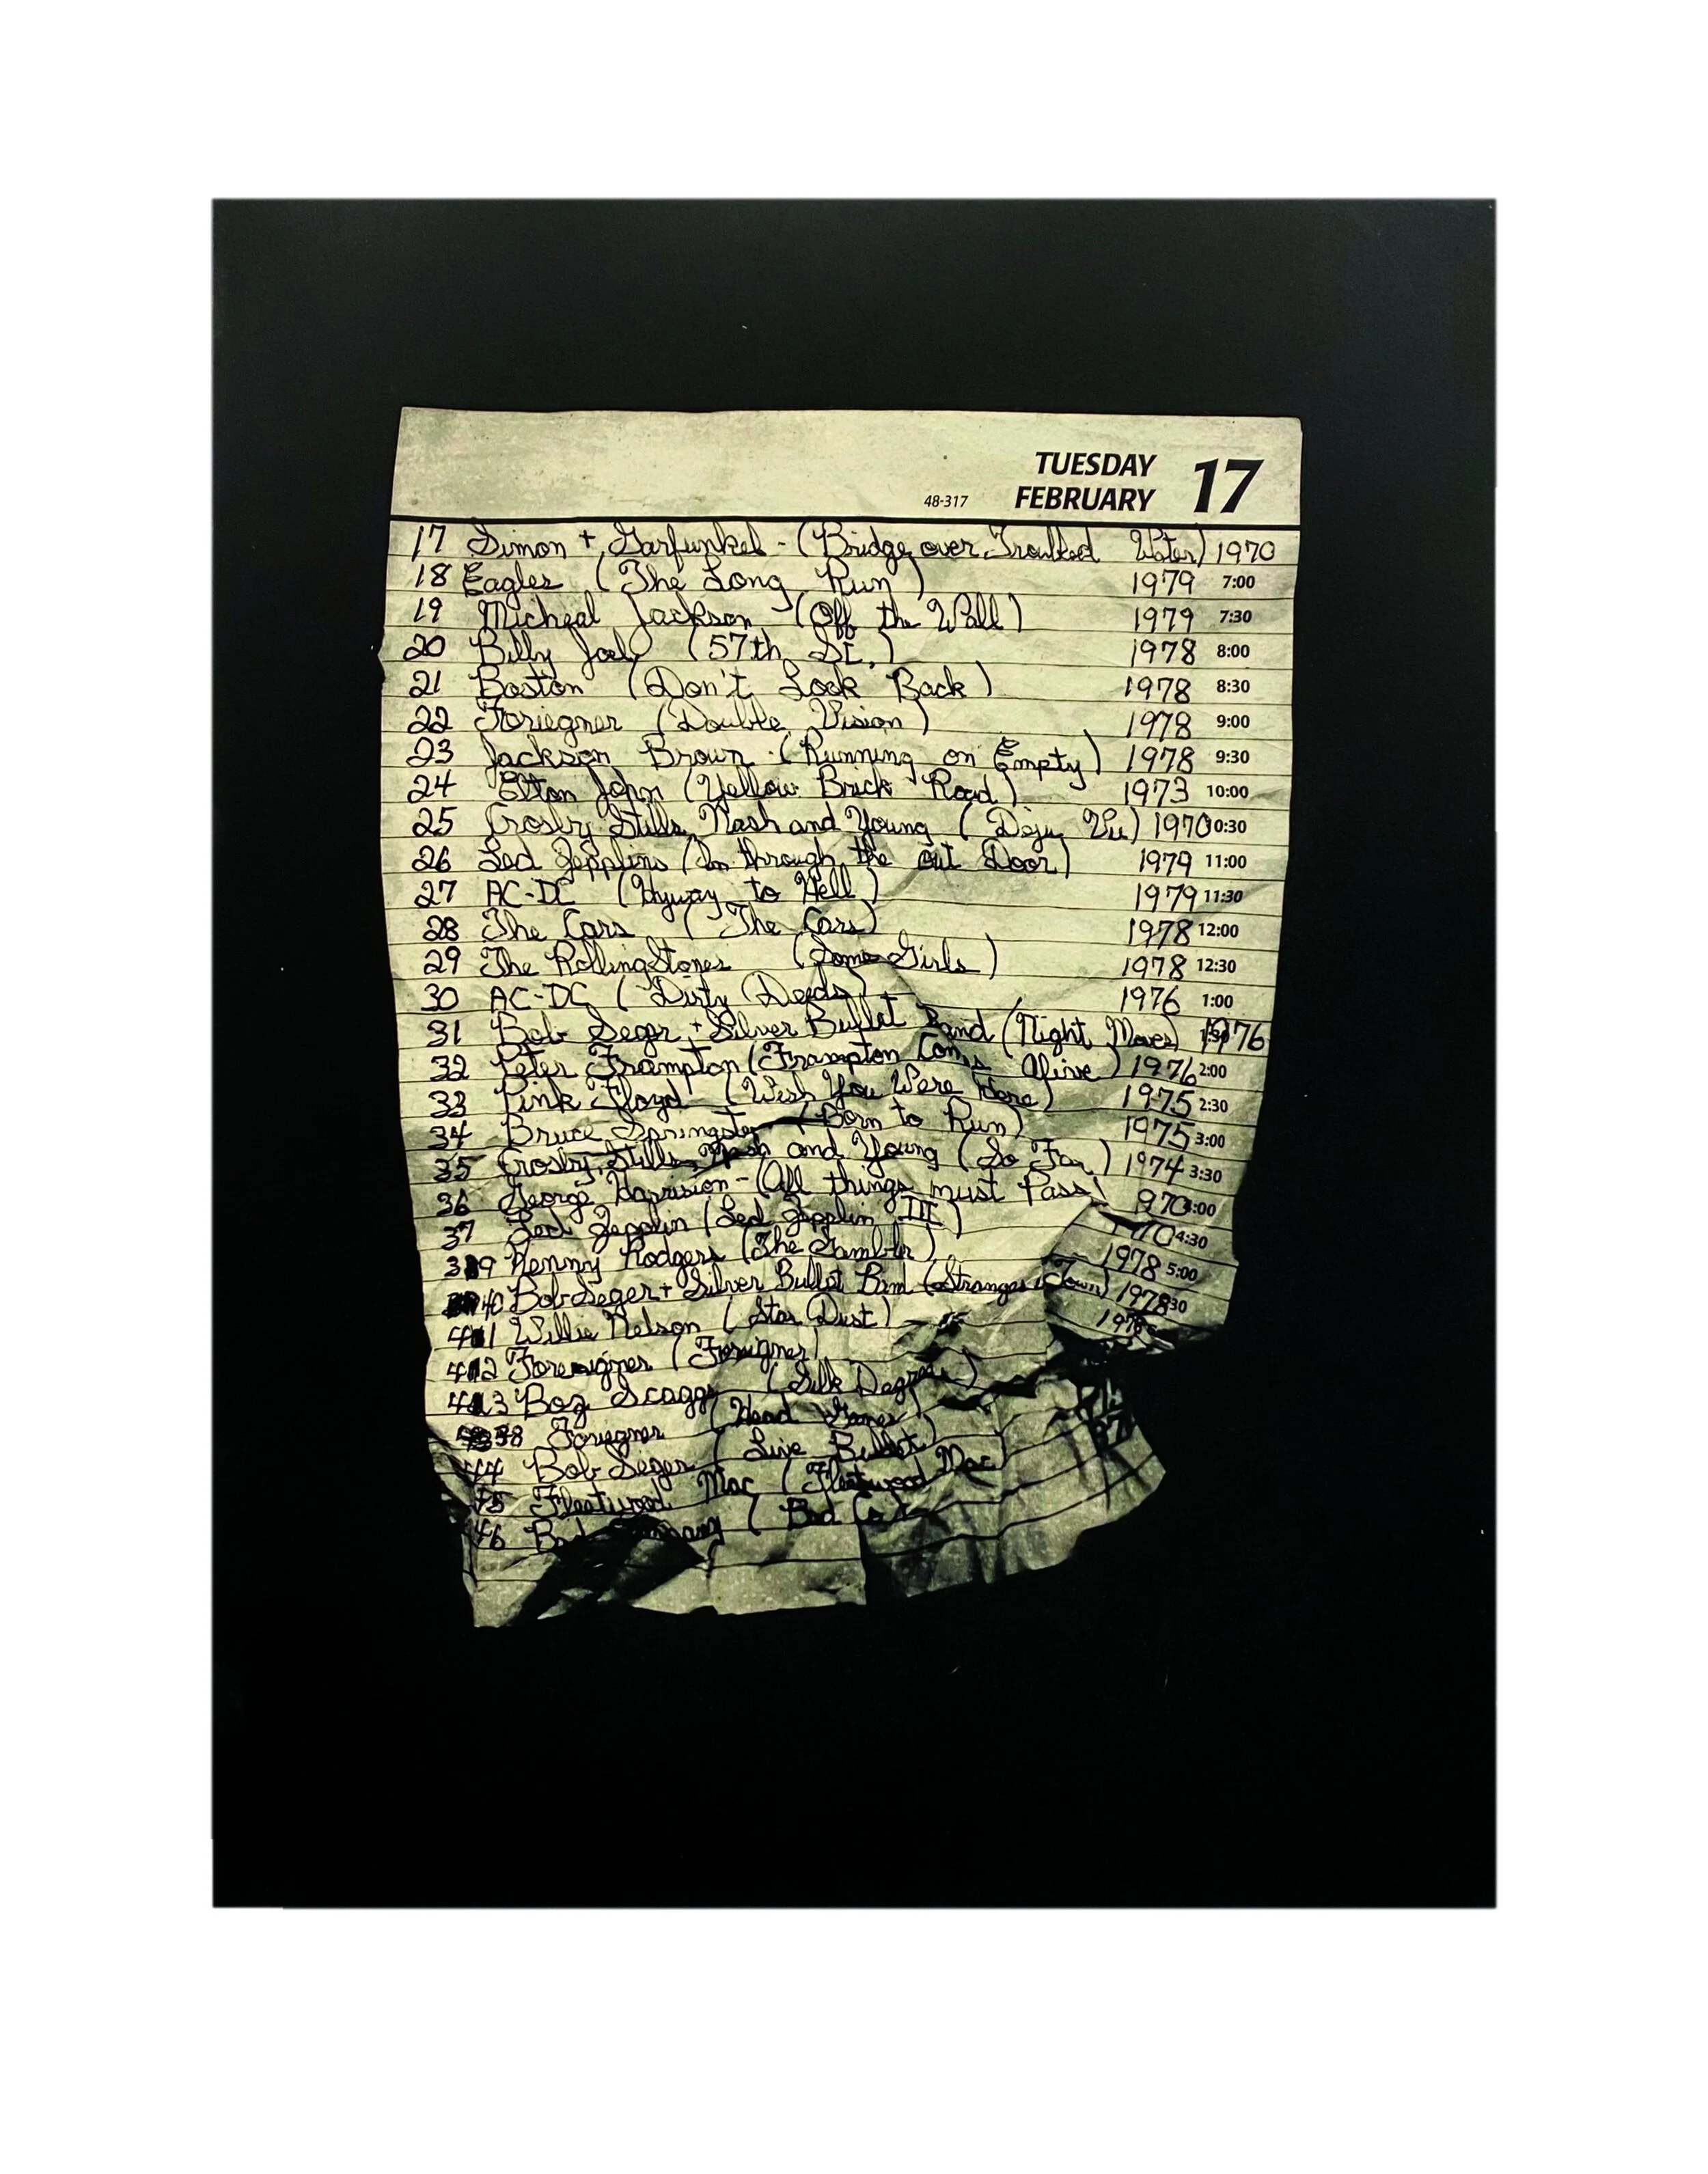 TUESDAY 17
48-317 FEBRUARY
17 Simon + Garfunkel - (Bridge over Troubled Water) 1970
18 Eagles (The Long Run) 1979 7:00
19 Micheal Jackson (Off the Wall) 1979 7:30
20 Billy Joel (57th St.) 1978 8:00
21 Boston (Don't Look Back) 1978 8:30
22 Foriegner (Double Vision) 1978 9:00
23 Jackson Brown (Running on Empty) 1978 9:30
24 Elton John (Yellow Brick Road) 1973 10:00
25 Crosby, Stills, Nash and Young (Deju Vu) 1970 0:30
26 Led Zepplins (In through the out Door) 1979 11:00
27 AC-DC (Hyway to Hell) 1979 11:30
28 The Cars (The Cars) 1978 12:00
29 The Rolling Stones (Some Girls) 1978 12:30
30 AC-DC (Dirty Deeds) 1976 1:00
31 Bob Seger + Silver Bullet Band (Night Moves) 1976
32 Peter Frampton (Frampton Coms Alive) 1976 2:00
33 Pink Floyd (Wish You Were Here) 1975 2:30
34 Bruce Springsten (Born to Run) 1975 3:00
35 Crosby, Stills, Nash and Young (So Far) 1974 3:30
36 George Harrision - (All things must Pass) 970 :00
37 Led Zepplin (Led Zepplin III) 70 4:30
39 Kenny Rodgers (The Gambler) 1978 5:00
40 Bob Seger + Silver Bullet Ban (Stranges Town) 1978 30
41 Willie Nelson (Star Dust) 1978
42 Foreigner (Foreigner)
43 Boz Scaggs (Silk Degrees)
38 Foriegner (Head Games)
44 Bob Seger (Live Bullet)
45 Fleetwood Mac (Fleetwood Mac)
46 (Bad Co